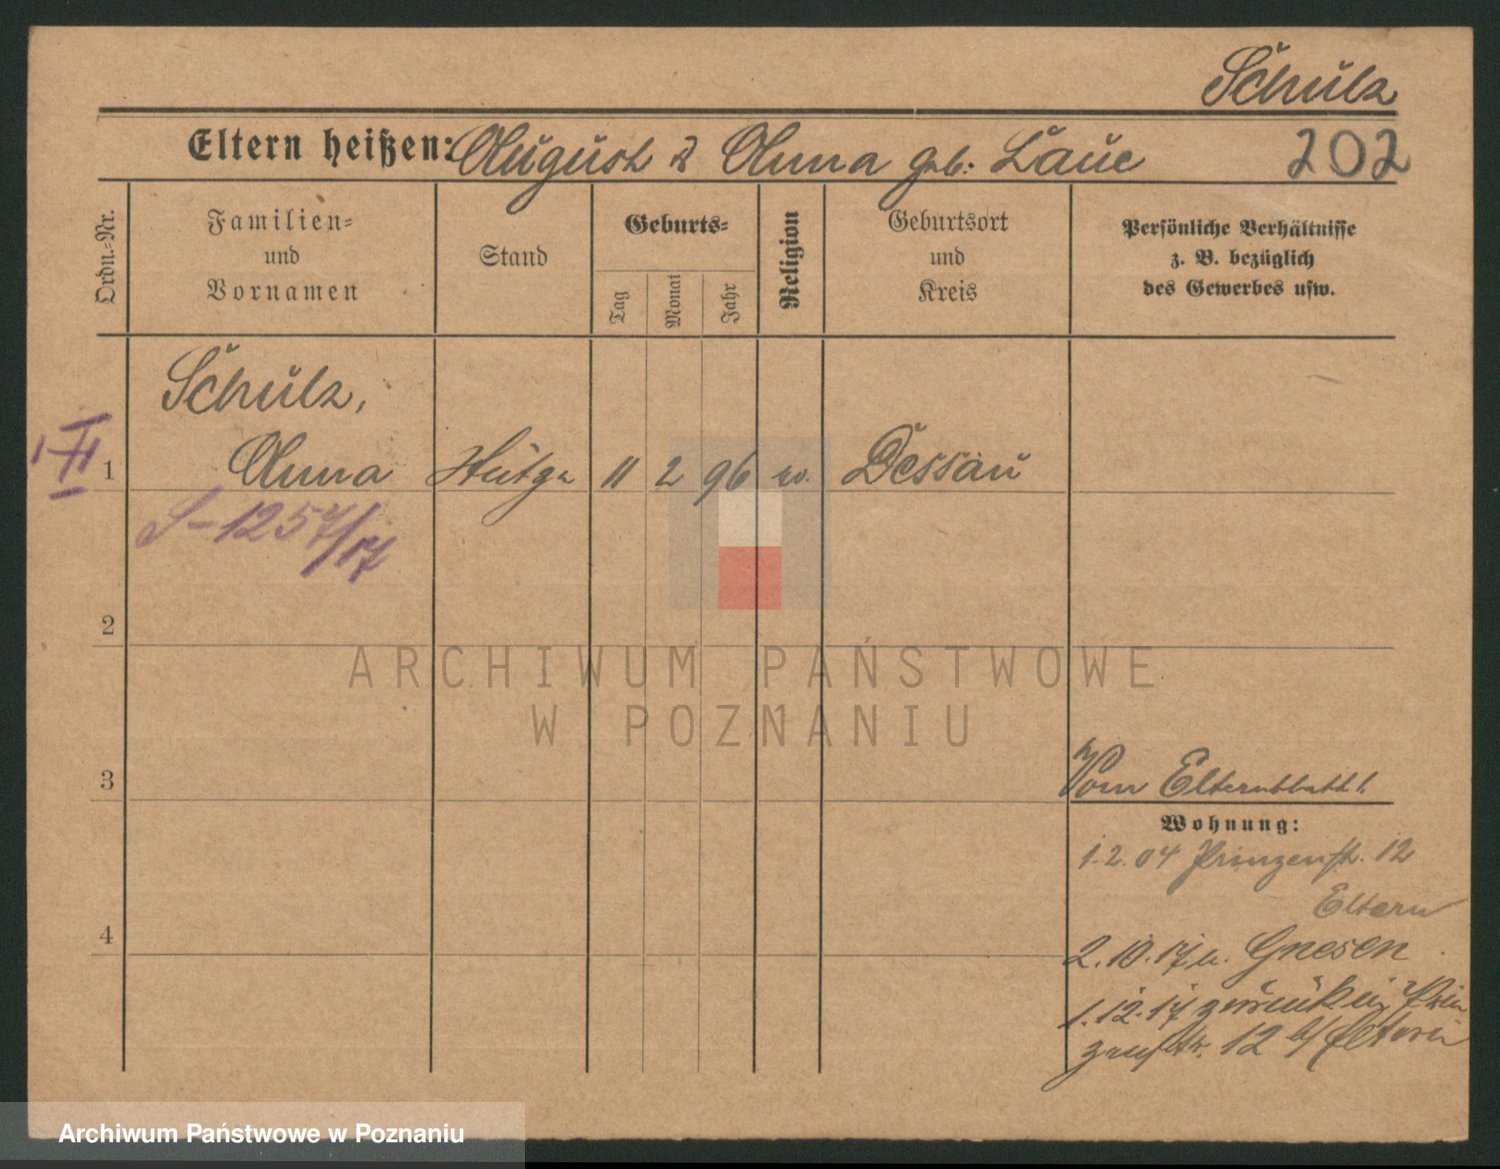 Schulz
Eltern heißen: August & Anna geb. Laue 202
Ordn.-Nr.
Familien-
und
Vornamen
Stand
Geburts-
Tag
Monat
Jahr
Religion
Geburtsort
und
Kreis
Persönliche Verhältnisse
z. B. bezüglich
des Gewerbes usw.
Schulz,
1 Anna 11 2 96 Dessau
S-1257/17
2
ARCHIWUM PAŃSTWOWE
W POZNANIU
3
Vom Elternblatt
Wohnung:
1.2.04 Prinzenstr. 12
Eltern
4
2.10.17 n. Gnesen
1.12.17 zurück in Prin
zenstr. 12 b/ Eltern
Archiwum Państwowe w Poznaniu